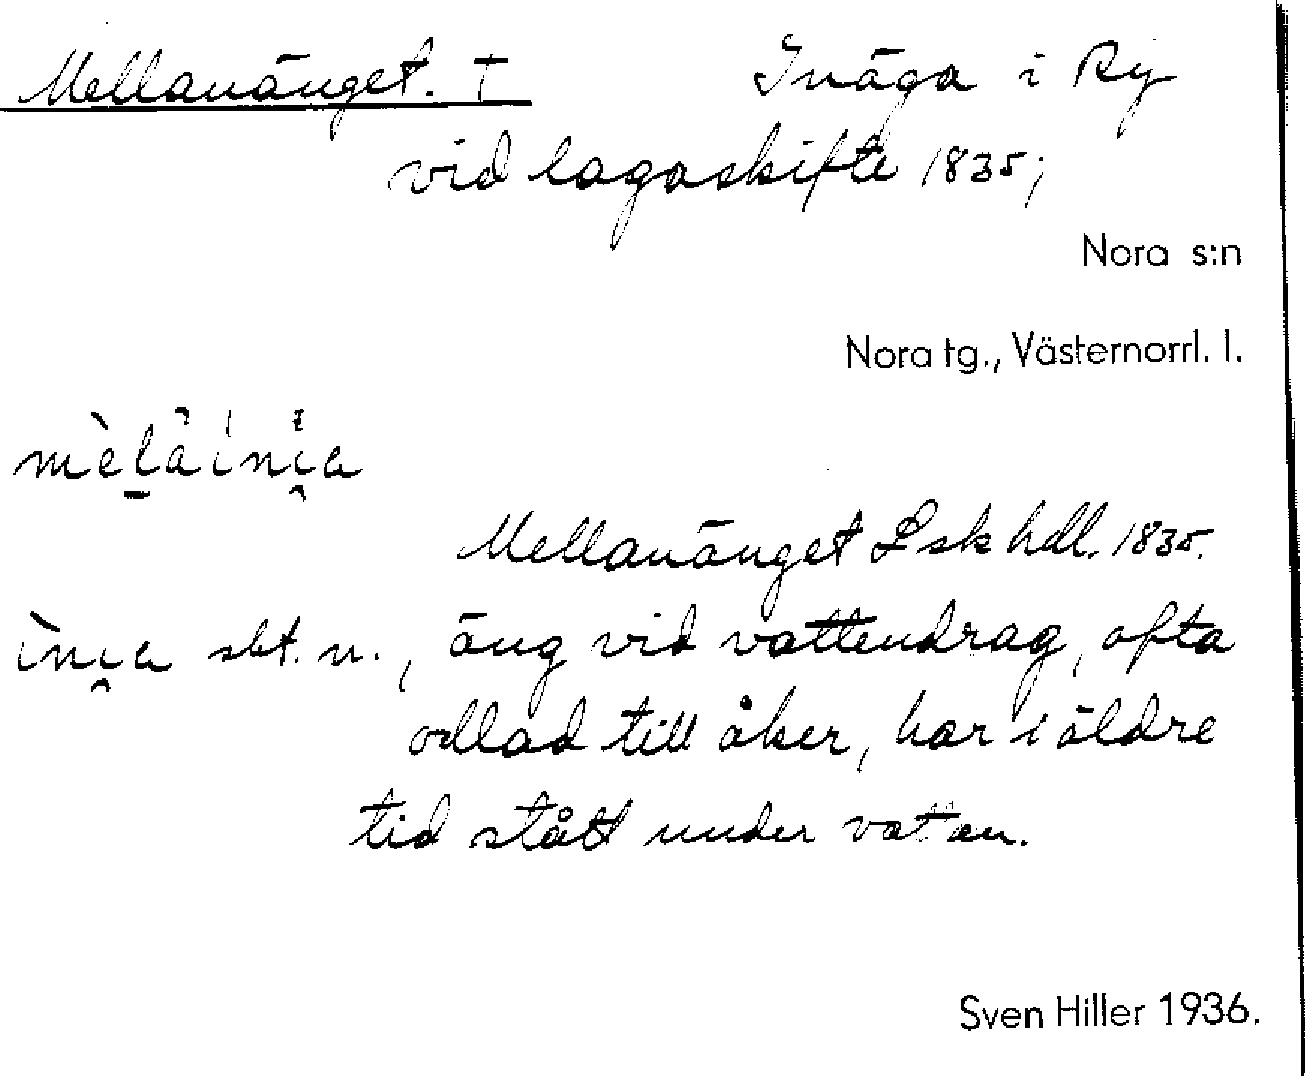 Mellanänget. † Inäga i Ry
vid lagaskifte 1835;
Nora s:n
Nora tg., Västernorrl. l.
Mellanänget Lsk hdl. 1835.
sbt. n., äng vid vattendrag, ofta
odlad till åker, har i äldre
tid stått under vatten.
Sven Hiller 1936.